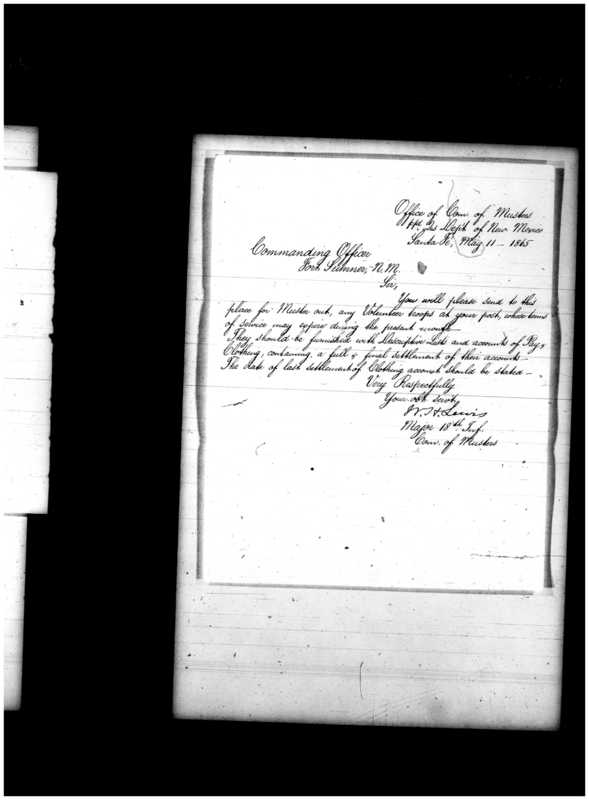 Office of Com. of Musters
Hd. Qrs Dept of New Mexico
Santa Fe, May 11 - 1865
Commanding Officer
Fort Sumner, N.M.
Sir,
You will please send to this
place for Muster out, any Volunteer troops at your post, whose terms
of service may expire during the present month -
They should be furnished with Descriptive Lists and accounts of Pay &
Clothing, containing a full & final settlement of their accounts -
The date of last settlement of Clothing account should be stated -
Very Respectfully
Your obt Servt,
W. H. Lewis
Major 18th Inf.
Com. of Musters